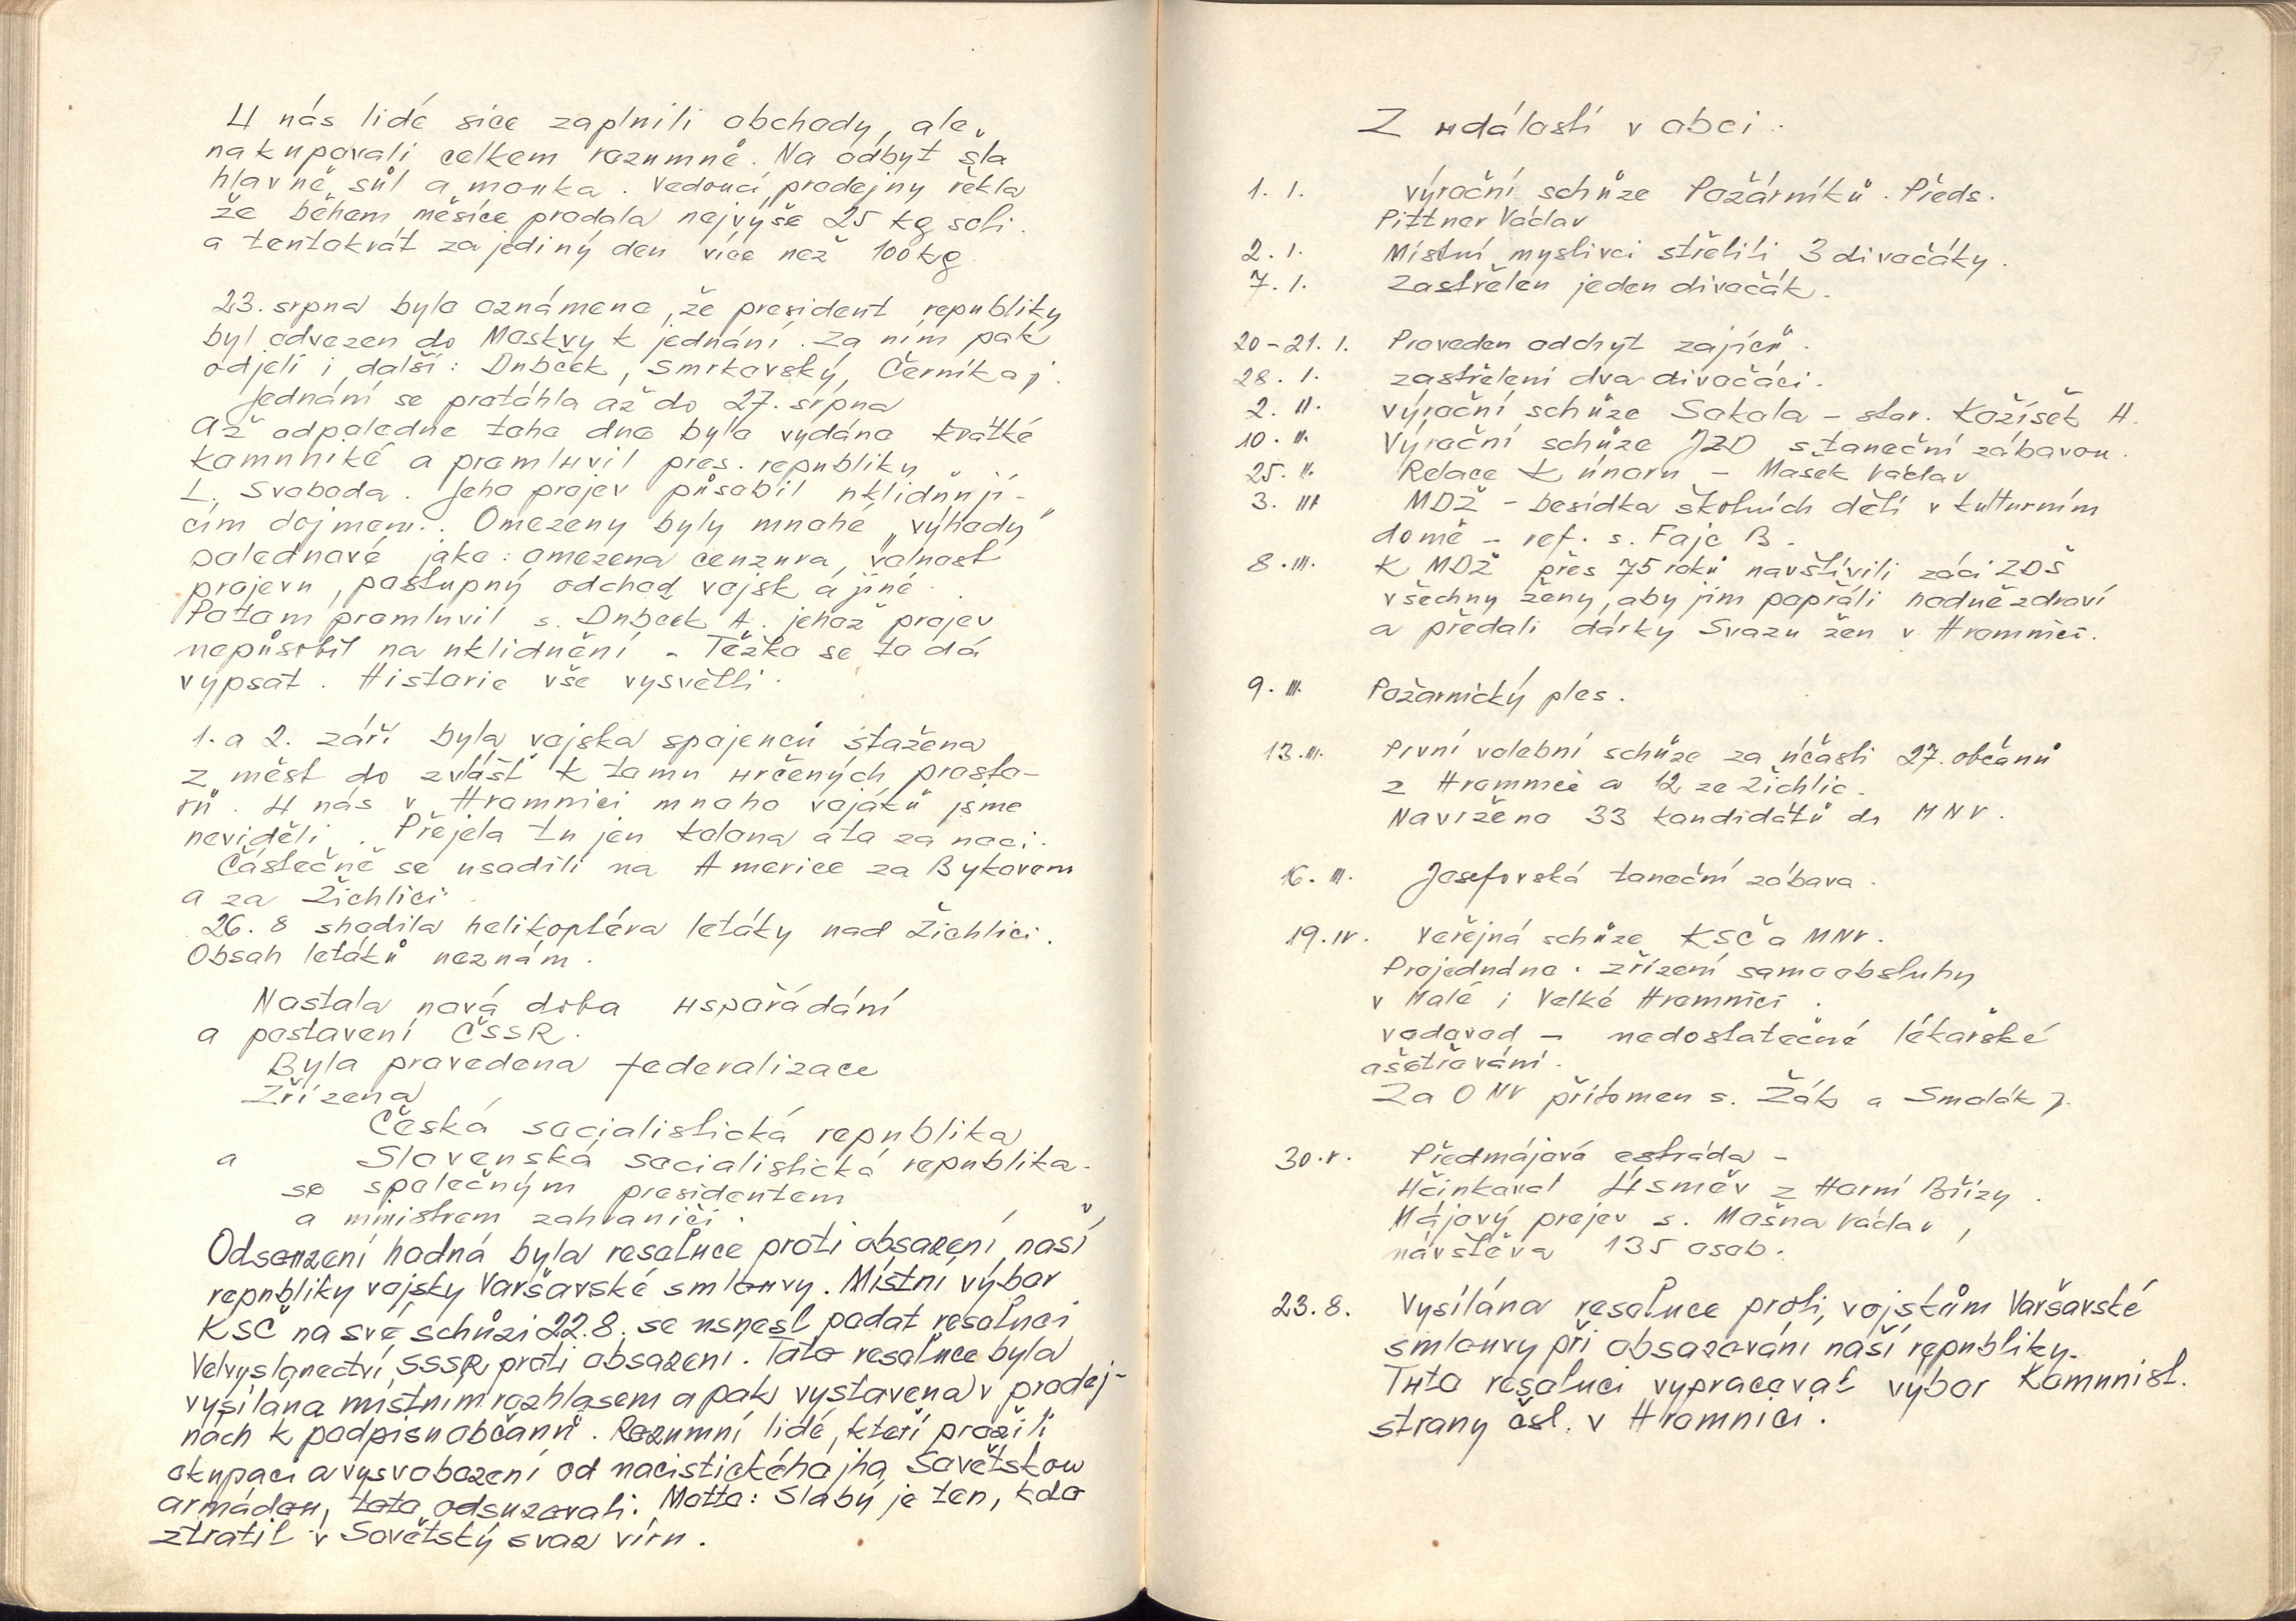 U nás lidé sice zaplnili obchody, ale
nakupovali celkem rozumně. Na odbyt šla
hlavně sůl a mouka. Vedoucí prodejny řekla
že během měsíce prodala nejvýše 25 kg soli.
a tentokrát za jediný den více než 100 kg
23. srpna bylo oznámeno, že president republiky
byl odvezen do Moskvy k jednání. Za ním pak
odjeli i další: Dubček, Smrkovský, Černík aj.
Jednání se protáhla až do 27. srpna
Až odpoledne toho dne bylo vydáno krátké
komuniké a promluvil pres. republiky
L. Svoboda. Jeho projev působil uklidňují-
cím dojmem. Omezeny byly mnohé „výhody"
polednové jako: omezená cenzura, volnost
projevu, postupný odchod vojsk a jiné.
Potom promluvil s. Dubček A. jehož projev
nepůsobil na uklidnění - Těžko se to dá
vypsat. Historie vše vysvětlí.
1. a 2. září byla vojska spojenců stažena
z měst do zvlášť k tomu určených prosto-
rů. U nás v Hromnici mnoho vojáků jsme
neviděli. Přejela tu jen kolona a to za noci.
Částečně se usadili na Americe za Bykovem
a za Žichlicí
26. 8 shodila helikoptéra letáky nad Žichlicí.
Obsah letáků neznám.
Nastala nová doba uspořádání
a postavení ČSSR.
Byla provedena federalizace
Zřízena
Česká socialistická republika
a Slovenská socialistická republika.
se společným presidentem
a ministrem zahraničí.
Odsouzení hodná byla resoluce proti obsazení naší
republiky vojsky Varšavské smlouvy. Místní výbor
KSČ na své schůzi 22.8. se usnesl podat resoluci
Velvyslanectví SSSR proti obsazení. Tato resoluce byla
vysílána místním rozhlasem a pak vystavena v prodej-
nách k podpisu občanů. Rozumní lidé, kteří prožili
okupaci a vysvobození od nacistického jha Sovětskou
armádou, toto odsuzovali. Motto: Slabý je ten, kdo
ztratil v Sovětský svaz víru.
39.
Z událostí v obci:
1. I. Výroční schůze Požárníků. Předs.
Pittner Václav
2. I. Místní myslivci střelili 3 divočáky.
7. I. Zastřelen jeden divočák.
20-21. I. Proveden odchyt zajíců.
28. I. zastřeleni dva divočáci.
2. II. výroční schůze Sokola - star. Kožíšek H.
10. II. Výroční schůze JZD s taneční zábavou.
25. II. Relace k únoru - Mašek Václav
3. III MDŽ - besídka školních dětí v kulturním
domě - ref. s. Fajc B.
8. III. K MDŽ přes 75 roků navštívili žáci ZDŠ
všechny ženy, aby jim popřáli hodně zdraví
a předali dárky Svazu žen v Hromnici.
9. III. Požárnický ples.
13. III. První volební schůze za účasti 27. občanů
z Hromnice a 12 ze Žichlic.
Navrženo 33 kandidátů do MNV.
16. III. Josefovská taneční zábava.
19. IV. Veřejná schůze KSČ a MNV.
Projednáno: zřízení samoobsluhy
v Malé i Velké Hromnici.
vodovod - nedostatečné lékařské
ošetřování.
Za ONV přítomen s. Žák a Smolák J.
30. V. Předmájová estráda -
Účinkoval Úsměv z Horní Břízy.
Májový projev s. Mašna Václav,
návštěva 135 osob.
23. 8. Vysílána resoluce proti vojskům Varšavské
smlouvy při obsazování naší republiky.
Tuto resoluci vypracoval výbor Komunist.
strany čsl. v Hromnici.